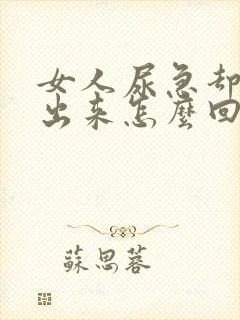 女人尿急却
出来怎麼回
蘇思蓉